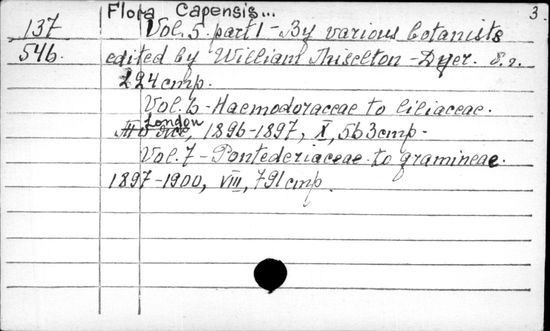 Flora Capensis... 3.
137 Vol. 5. part 1 - By various botanists
546. edited by William Thiselton - Dyer. S.a.
224 cmp.
Vol. 6 - Haemodoraceae to liliaceae.
London, 1896-1897, X, 563 cmp.
Vol. 7 - Pontederiaceae to gramineae.
1897-1900, VIII, 791 cmp.